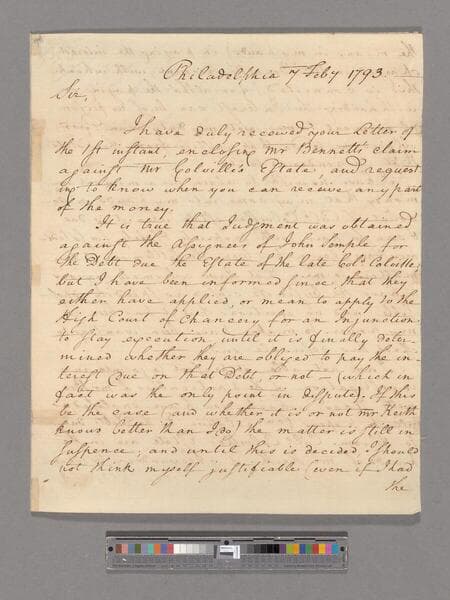 Philadelphia 7 Feby 1793
Sir,
I have duly received your Letter of
the 1st instant, enclosing Mr Bennetts claim
against Mr Colville's Estate, and request
ing to know when you can receive any part
of the money.
It is true that Judgment was obtained
against the Assignees of John Semple for
the Debt due the Estate of the late Colo Colville;
but I have been informed since that they
either have applied, or mean to apply to the
High Court of Chancery for an Injunction
to stay execution until it is finally deter-
mined whether they are obliged to pay the in-
terest due on that Debt, or not - (which in
fact was the only point in dispute). If this
be the case (and whether it is or not Mr Keith
knows better than I do) the matter is still in
suspence; and until this is decided, I should
not think myself justifiable (even if I had
the